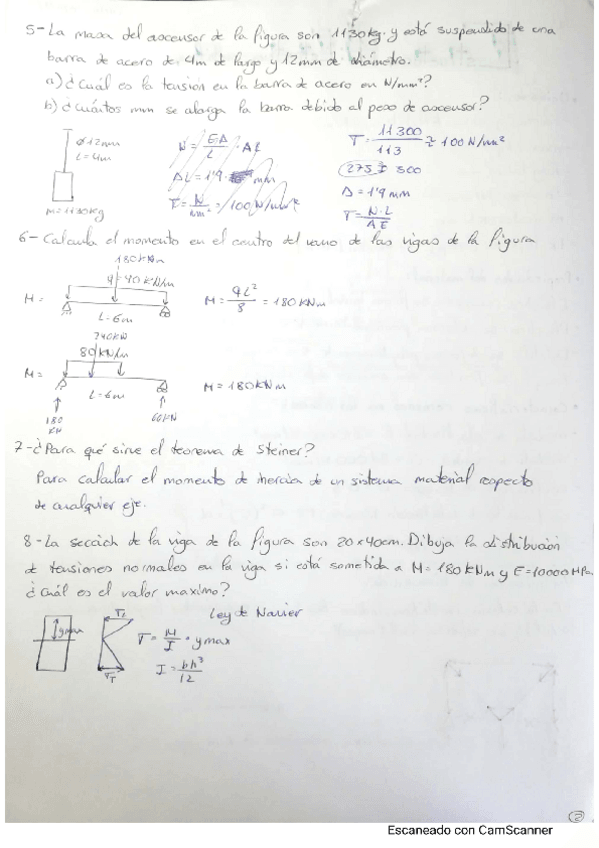 5-La masa del ascensor de la figura son 1130kg. y está suspendido de una
barra de acero de 4m de largo y 12mm de diámetro.
a) ¿Cuál es la tensión en la barra de acero en N/mm²?
b) ¿Cuántos mm se alarga la barra debido al peso de ascensor?
Ø12mm
L=4m
m=1130kg
N = EA/L · ΔL
ΔL = 1'9 mm
T = N/mm² = 100 N/mm²
T = 11300/113 ≈ 100 N/mm²
275 500
Δ = 1'9 mm
T = N·L/AE
6-Calcula el momento en el centro del vano de las vigas de la figura
180kNm
q=40kN/m
M=
L=6m
M = qL²/8 = 180kNm
240kN
80kN/m
M=
L=6m
M=180kNm
180
kN
60kN
7-¿Para qué sirve el teorema de Steiner?
Para calcular el momento de inercia de un sistema material respecto
de cualquier eje.
8-La sección de la viga de la figura son 20x40cm. Dibuja la distribución
de tensiones normales en la viga si está sometida a M=180kNm y E=10000MPa.
¿Cuál es el valor maximo?
Ley de Navier
T = M/I · ymax
I = bh³/12
Escaneado con CamScanner